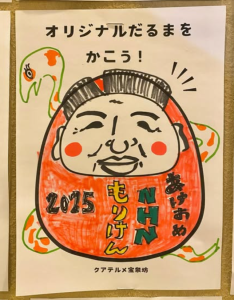 オリジナルだるまを
かこう！
あけおめ
NHN
もりけん
2025
クアテルメ宝泉坊